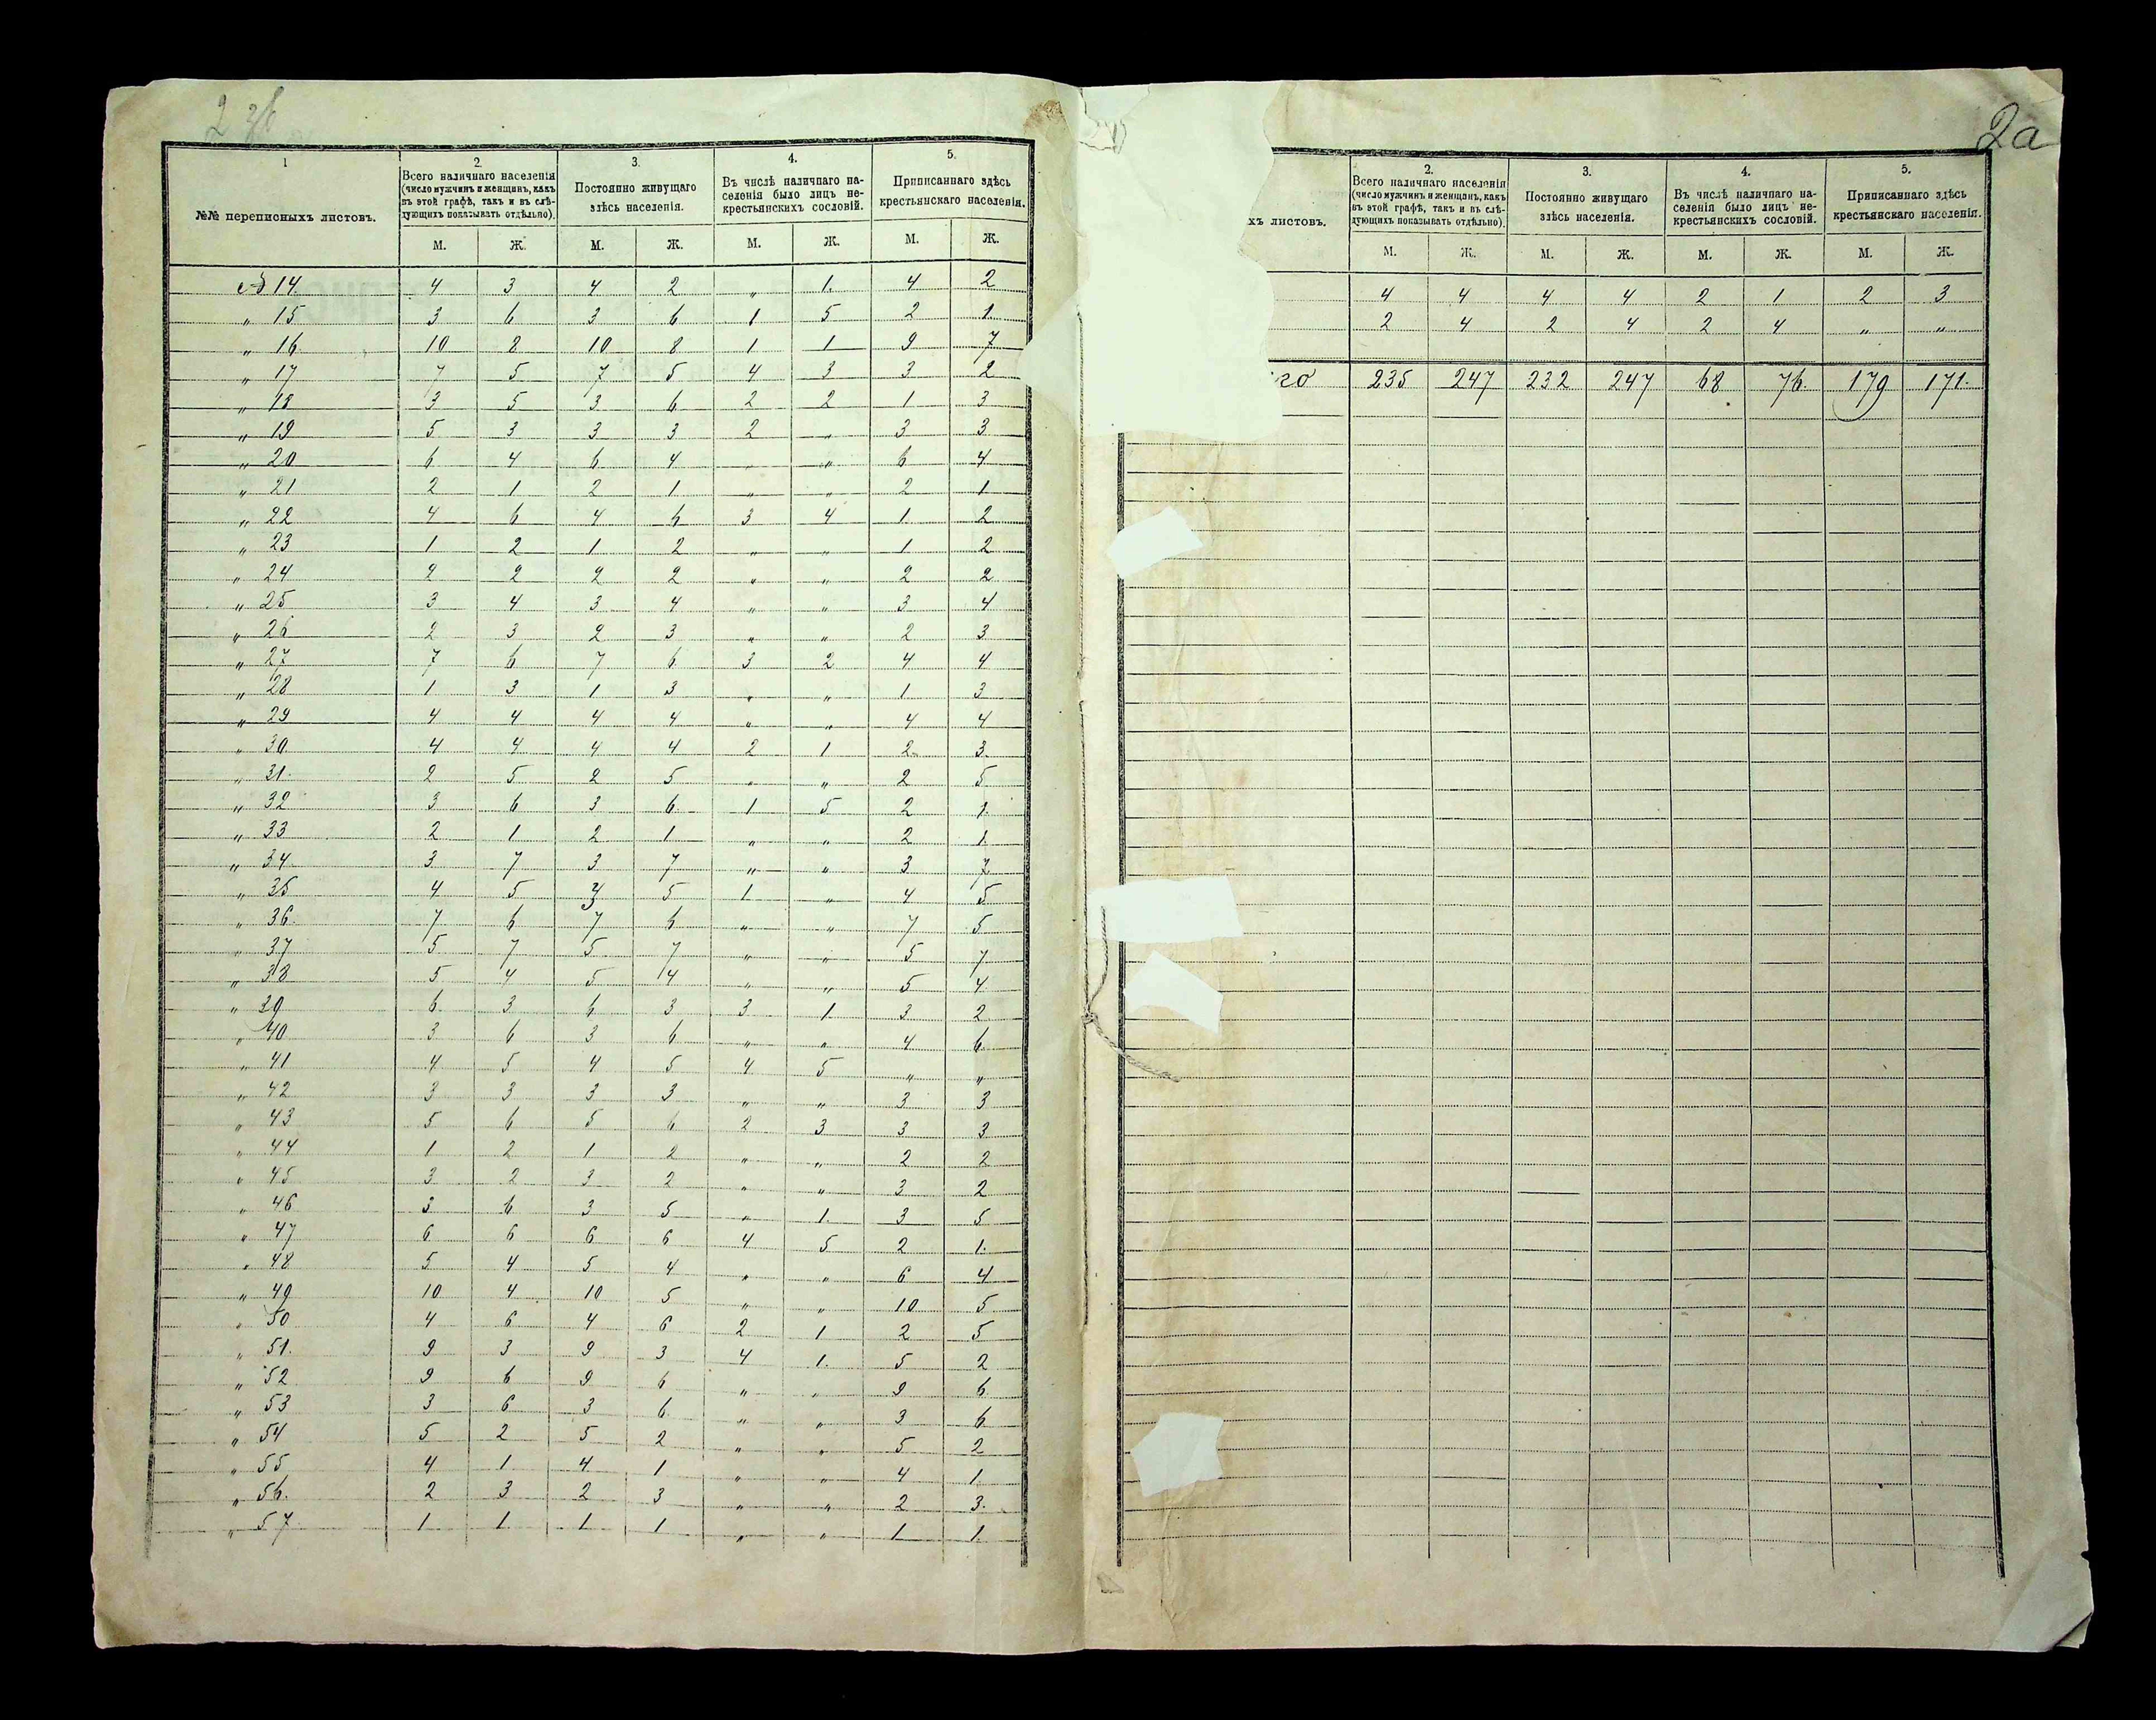 2 зб
1
2.
3.
4.
5.
№№ переписныхъ листовъ.
Всего наличнаго населенія
(число мужчинъ и женщинъ, какъ
въ этой графѣ, такъ и въ слѣ-
дующихъ показывать отдѣльно).
Постоянно живущаго
здѣсь населенія.
Въ числѣ наличнаго на-
селенія было лицъ не-
крестьянскихъ сословій.
Приписаннаго здѣсь
крестьянскаго населенія.
М. Ж. М. Ж. М. Ж. М. Ж.
№ 14. 4 3 4 2 „ 1. 4 2
„ 15 3 6 3 6 1 5 2 1
„ 16 10 8 10 8 1 1 9 7
„ 17 7 5 7 5 4 3 3 2
„ 18 3 5 3 6 2 2 1 3
„ 19 5 3 3 3 2 „ 3 3
„ 20 6 4 6 4 „ „ 6 4
„ 21 2 1 2 1 „ „ 2 1
„ 22 4 6 4 6 3 4 1 2
„ 23 1 2 1 2 „ „ 1 2
„ 24 2 2 2 2 „ „ 2 2
„ 25 3 4 3 4 „ „ 3 4
„ 26 2 3 2 3 „ „ 2 3
„ 27 7 6 7 6 3 2 4 4
„ 28 1 3 1 3 „ „ 1 3
„ 29 4 4 4 4 „ „ 4 4
„ 30 4 4 4 4 2 1 2 3
„ 31. 2 5 2 5 „ „ 2 5
„ 32 3 6 3 6 1 5 2 1.
„ 33 2 1 2 1 „ „ 2 1.
„ 34 3 7 3 7 „ „ 3 7
„ 35 4 5 3 5 1 „ 4 5
„ 36. 7 6 7 6 „ „ 7 5
„ 37 5 7 5 7 „ „ 5 7
„ 38 5 4 5 4 „ „ 5 4
„ 39 6 3 6 3 3 1 3 2
„ 40 3 6 3 6 „ „ 4 6
„ 41 4 5 4 5 4 5 „ „
„ 42 3 3 3 3 „ „ 3 3
„ 43 5 6 5 6 2 3 3 3
„ 44 1 2 1 2 „ „ 2 2
„ 45 3 2 3 2 „ „ 3 2
„ 46 3 6 3 5 „ 1. 3 5
„ 47 6 6 6 6 4 5 2 1.
„ 48 5 4 5 4 „ „ 6 4
„ 49 10 4 10 5 „ „ 10 5
„ 50 4 6 4 6 2 1 2 5
„ 51. 9 3 9 3 4 1. 5 2
„ 52 9 6 9 6 „ „ 9 6
„ 53 3 6 3 6 „ „ 3 6
„ 54 5 2 5 2 „ „ 5 2
„ 55 4 1 4 1 „ „ 4 1
„ 56. 2 3 2 3 „ „ 2 3.
„ 57 1 1 1 1 „ „ 1 1
2а
2.
3.
4.
5.
хъ листовъ.
Всего наличнаго населенія
(число мужчинъ и женщинъ, какъ
въ этой графѣ, такъ и въ слѣ-
дующихъ показывать отдѣльно).
Постоянно живущаго
здѣсь населенія.
Въ числѣ наличнаго на-
селенія было лицъ не-
крестьянскихъ сословій.
Приписаннаго здѣсь
крестьянскаго населенія.
М. Ж. М. Ж. М. Ж. М. Ж.
4 4 4 4 2 1 2 3
2 4 2 4 2 4 „ „
го 235 247 232 247 68 76 179 171.